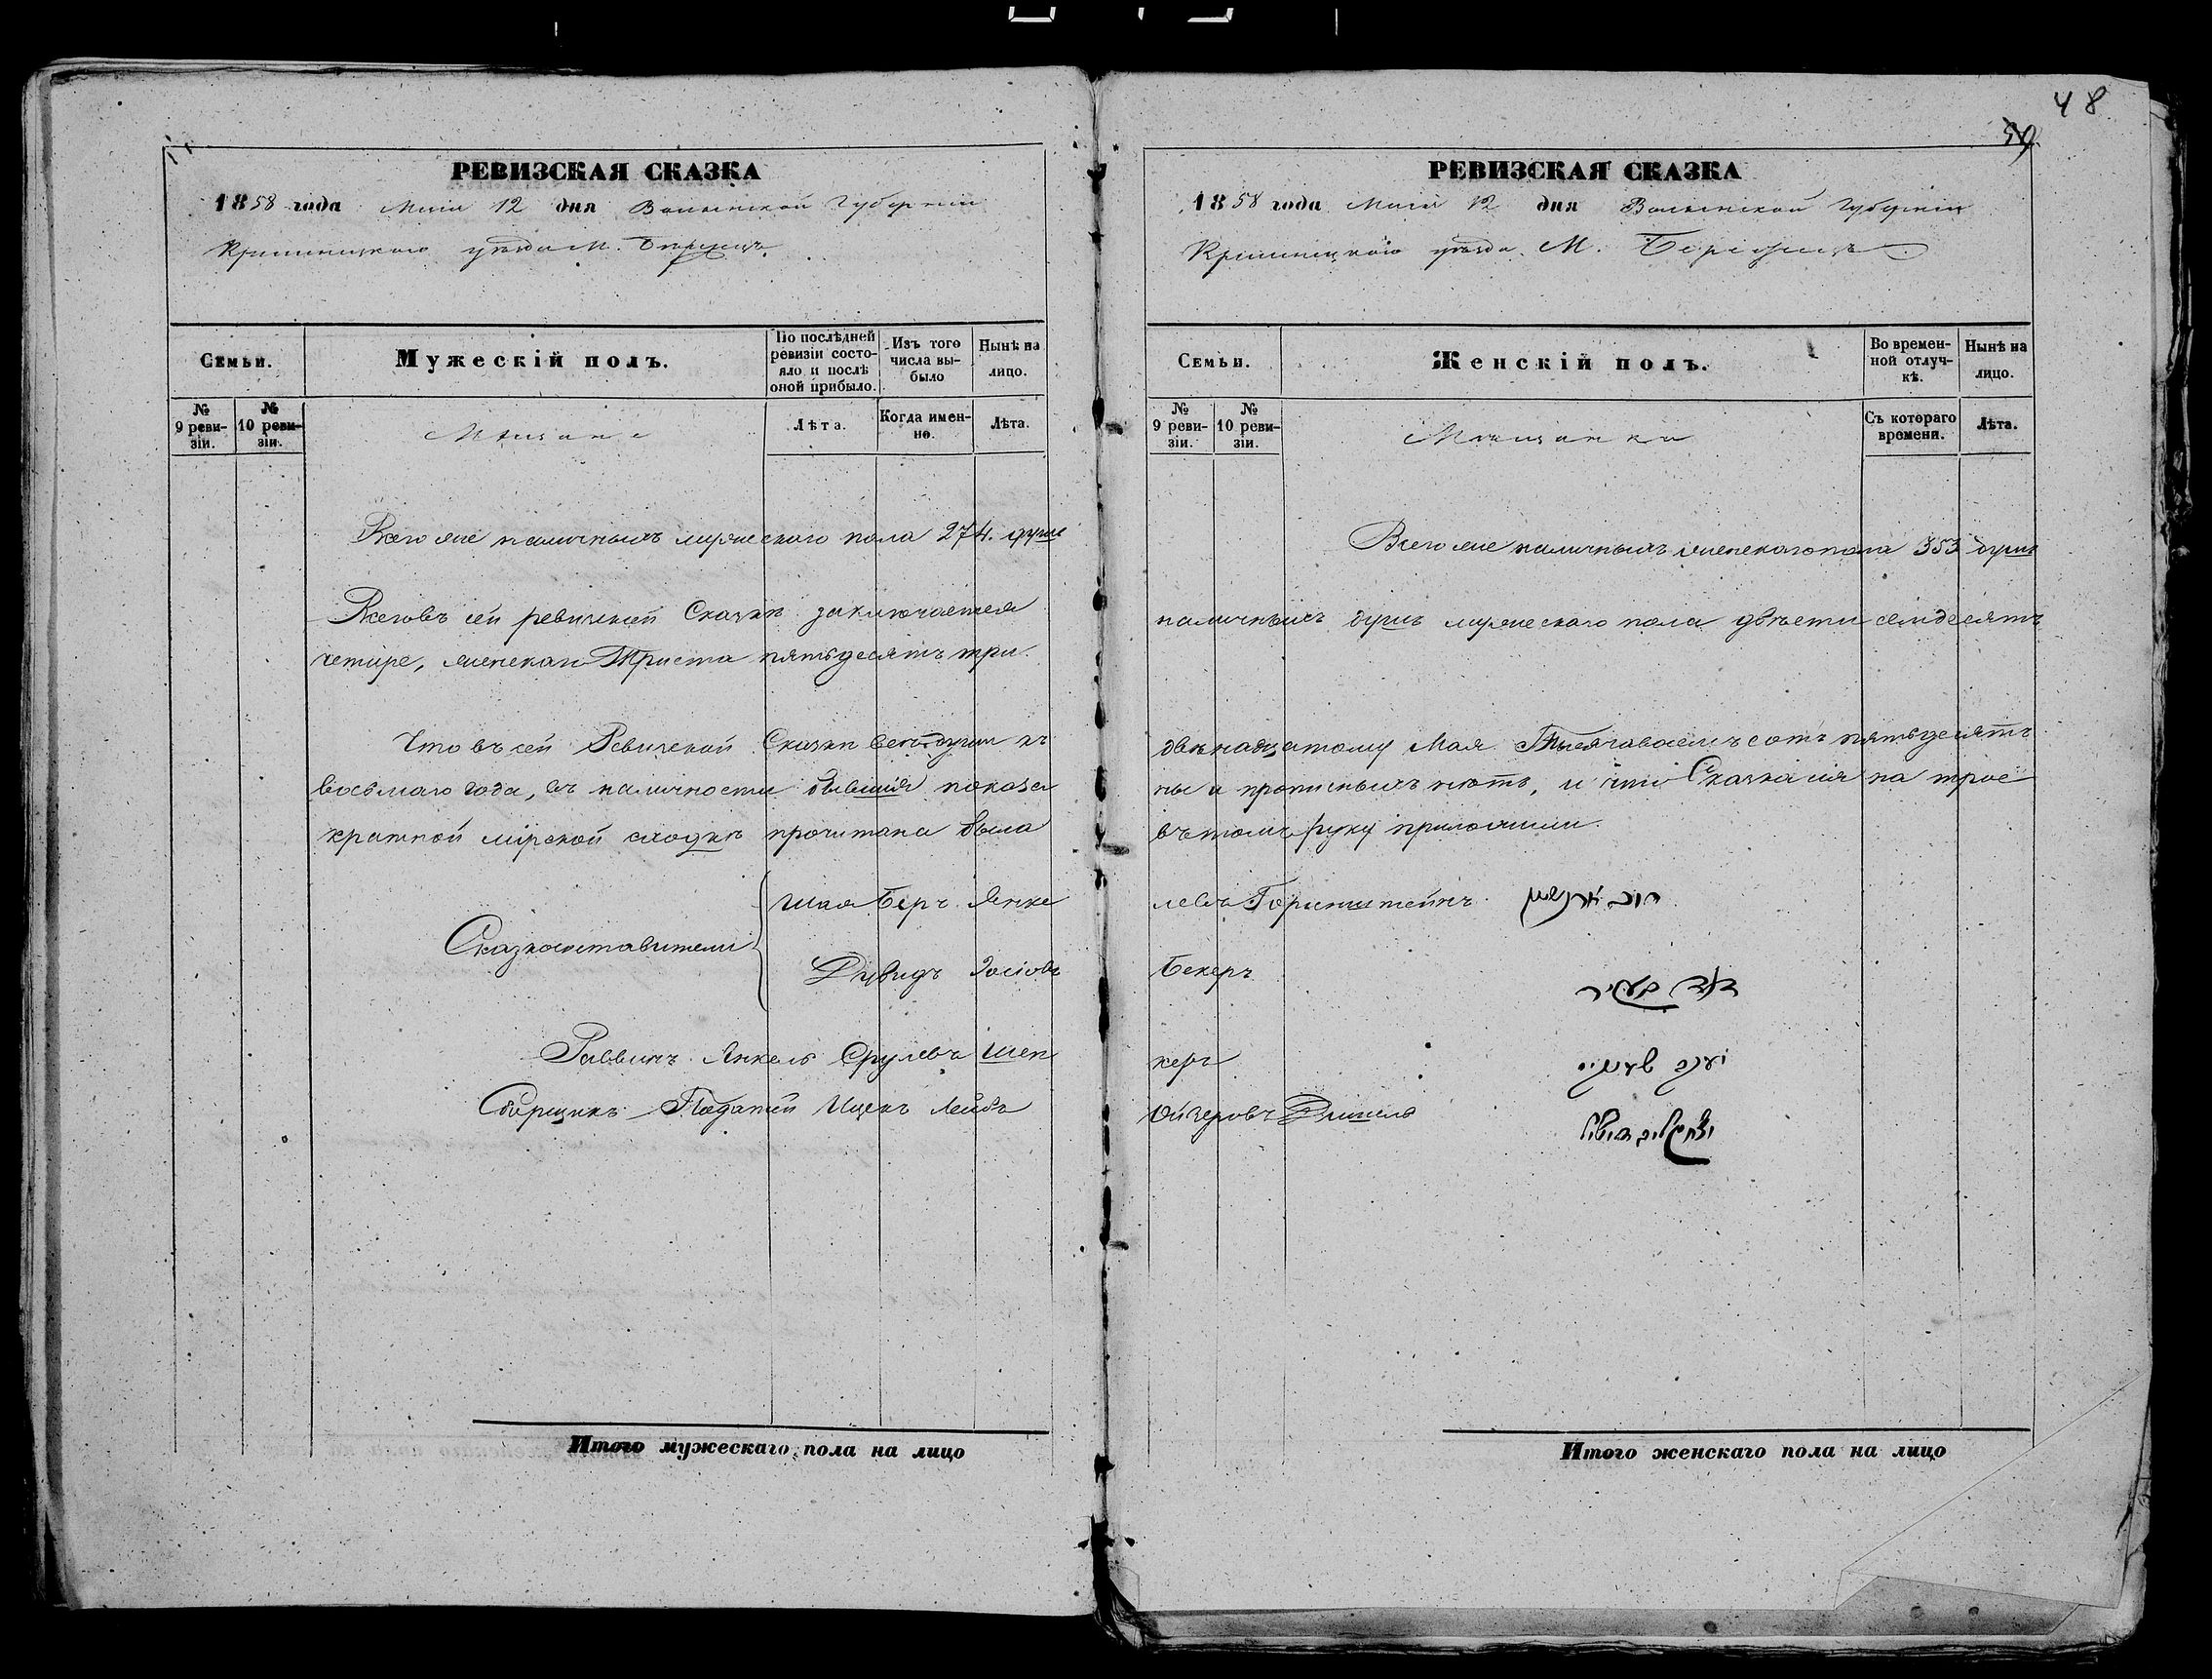 48
59
РЕВИЗСКАЯ СКАЗКА
1858 года Маія 12 дня Волынской Губерніи
Кременецкаго уѣзда М. Бережецъ
Семьи.
Мужескій полъ.
По послѣдней ревизіи состояло и послѣ оной прибыло.
Изъ того числа выбыло
Нынѣ на лицо.
№ 9 ревизіи.
№ 10 ревизіи.
Мѣщане
Лѣта.
Когда именно.
Лѣта.
Всего же наличныхъ мужескаго пола 274. душъ
Всего въ сей ревизкой Сказкѣ заключается
четыре, женскаго Триста пятьдесятъ три.
Что въ сей Ревизской Сказки всѣ души къ
восьмаго года, въ наличности бывшія показа
кратной мірской сходкѣ прочитана была
Сказкосоставители
Шая Беръ Янке
Давидъ Іосіовъ
Раввинъ Янкель Срулевъ Шен
Сборщикъ Податей Ицекъ Лейбъ
Итого мужескаго пола на лицо
РЕВИЗСКАЯ СКАЗКА
1858 года Маія 12 дня Волынской Губерніи
Кременецкаго уѣзда М. Бережецъ
Семьи.
Женскій полъ.
Во временной отлучкѣ.
Нынѣ на лицо.
№ 9 ревизіи.
№ 10 ревизіи.
Мѣщанки
Съ котораго времени.
Лѣта.
Всего же наличныхъ женскаго пола 353 душъ
наличныхъ душъ мужескаго пола двѣсти семдесятъ
двѣнадцатому Мая Тысяча восемъ сотъ пятьдесятъ
ны и прописныхъ нѣтъ, и что Сказка сія на трое
въ томъ руку приложили.
левъ Горинштейнъ
Бекеръ
דוד בעקיר
керъ
Ойзеровъ
Итого женскаго пола на лицо